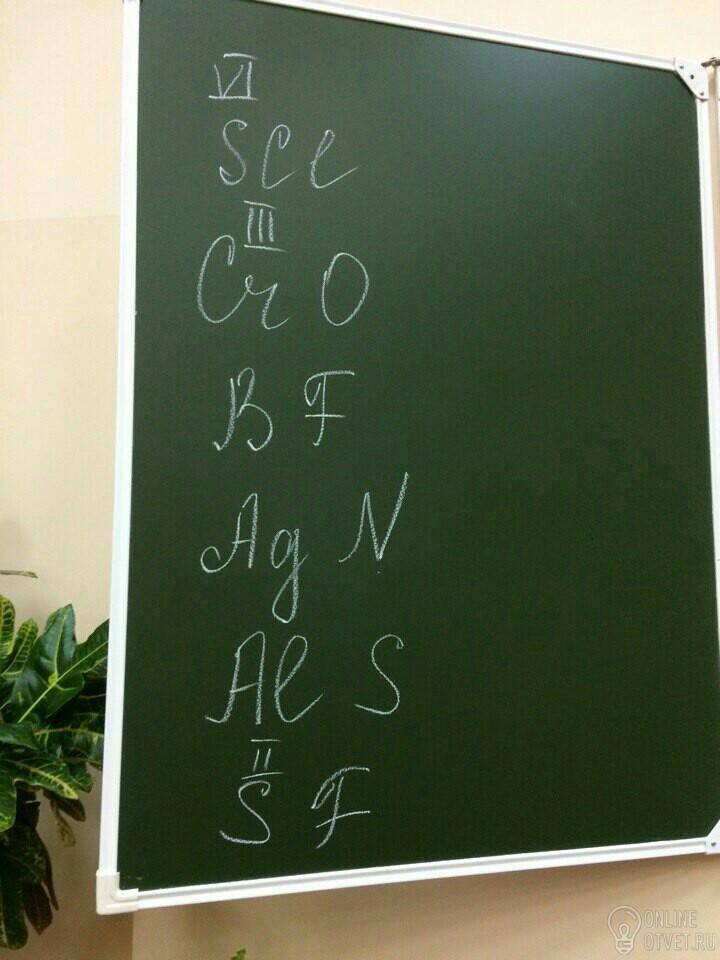 VI
SCl
III
Cr O
B F
Ag N
Al S
II
S F
ONLINE
OTVET.RU